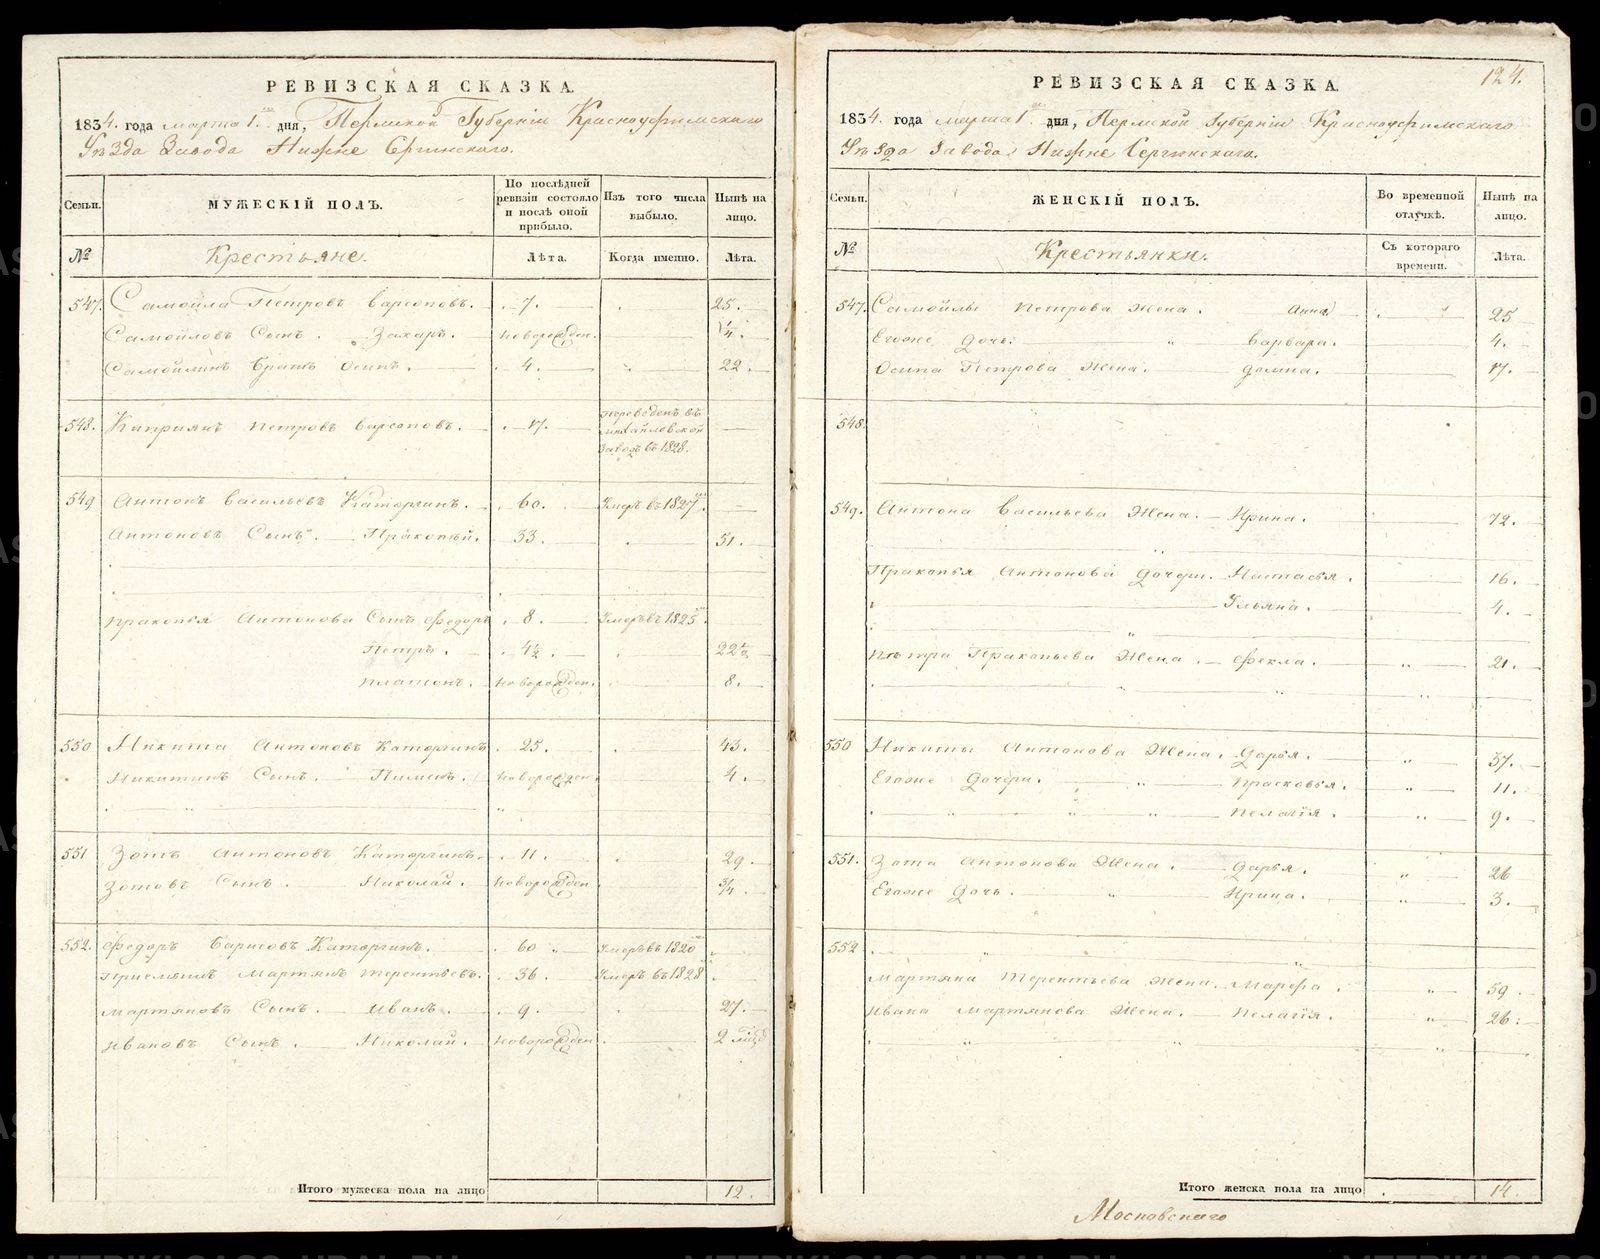 РЕВИЗСКАЯ СКАЗКА.
1834. года марта 1. дня, Пермской Губернiи Красноуфимскаго
Уѣзда Завода Нижне Сергинскаго.
Семьи. МУЖЕСКIЙ ПОЛЪ. По послѣдней ревизiи состояло и послѣ оной прибыло. Изъ того числа выбыло. Нынѣ на лицо.
№ Крестьяне. Лѣта. Когда именно. Лѣта.
547. Самойла Петровъ Варсоповъ. 7. 25.
Самойловъ Сынъ. Захаръ. новорожден. ¼.
Самойлинъ Братъ Осипъ. 4. 22.
548. Киприянъ Петровъ Варсоповъ. 17. Переведенъ въ
Михайловской
Заводъ въ 1828.
549 Антонъ Васильевъ Каторгинъ. 60. Умеръ въ 1827.
Антоновъ Сынъ. Пракопiй. 33. 51.
Пракопья Антонова Сынъ Федоръ 8. Умеръ въ 1825.
Петръ. 4½. 22½.
Платонъ. новорожден. 8.
550 Никита Антоновъ Каторгинъ 25. 43.
Никитинъ Сынъ. Пименъ. новорожден. 4.
551 Зотъ Антоновъ Каторгинъ. 11. 29.
Зотовъ Сынъ. Николай. новорожден ¾.
552. Федоръ Барисовъ Каторгинъ. 60 Умеръ въ 1820
Приемышъ Мартянъ Терентьевъ. 36. Умеръ въ 1828
Мартяновъ Сынъ. Иванъ. 9. 27.
Ивановъ Сынъ. Николай. новорожден 2 мѣсяц
Итого мужеска пола на лицо 12.
124.
РЕВИЗСКАЯ СКАЗКА.
1834. года марта 1 дня, Пермской Губернiи Красноуфимскаго
Уѣзда Завода Нижне Сергинскаго.
Семьи. ЖЕНСКIЙ ПОЛЪ. Во временной отлучкѣ. Нынѣ на лицо.
№ Крестьянки. Съ котораго времени. Лѣта.
547. Самойлы Петрова Жена. Анна 25
Егоже Дочь. Варвара. 4.
Осипа Петрова Жена. Домна. 17.
548.
549. Антона Васильева Жена. Ирина. 72.
Пракопья Антонова Дочери. Настасья. 16.
Ульяна. 4.
Петра Пракопьева Жена. Фекла. 21.
550 Никиты Антонова Жена. Дарья. 37.
Егоже Дочери. Прасковья. 11.
Пелагiя. 9.
551. Зота Антонова Жена. Дарья. 26
Егоже Дочь. Ирина. 3.
552
Мартяна Терентьева Жена. Марфа. 59.
Ивана Мартянова Жена. Пелагiя. 26.
Итого женска пола на лицо 14.
Московскаго